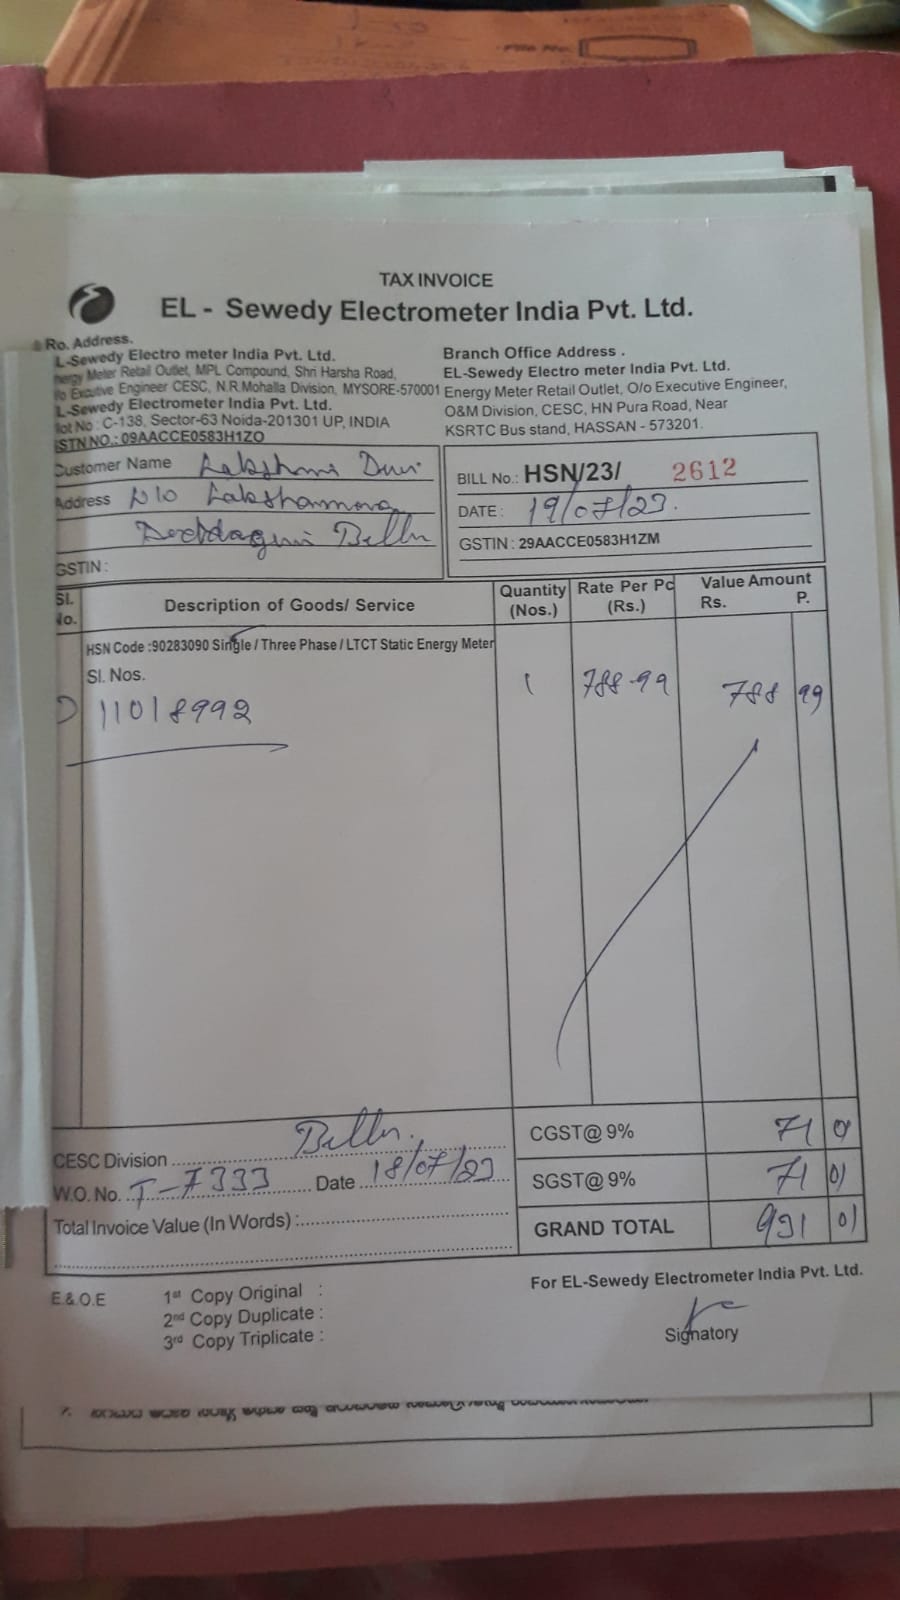 File No.
TAX INVOICE
EL - Sewedy Electrometer India Pvt. Ltd.
Ro. Address.
L-Sewedy Electro meter India Pvt. Ltd.
nergy Meter Retail Outlet, MPL Compound, Shri Harsha Road,
/o Excutive Engineer CESC, N.R.Mohalla Division, MYSORE-570001
L-Sewedy Electrometer India Pvt. Ltd.
lot No : C-138, Sector-63 Noida-201301 UP, INDIA
STN NO.: 09AACCE0583H1ZO
Branch Office Address .
EL-Sewedy Electro meter India Pvt. Ltd.
Energy Meter Retail Outlet, O/o Executive Engineer,
O&M Division, CESC, HN Pura Road, Near
KSRTC Bus stand, HASSAN - 573201.
Customer Name Lakshmi Devi
Address
Bellur
GSTIN :
BILL No.: HSN/23/ 2612
DATE : 19/07/23.
GSTIN : 29AACCE0583H1ZM
Sl. No. Description of Goods/ Service Quantity (Nos.) Rate Per Pc (Rs.) Value Amount Rs. P.
HSN Code :90283090 Single / Three Phase / LTCT Static Energy Meter
Sl. Nos. 1 788.99 788 99
11018992
CGST@ 9% 71 01
CESC Division Bellur.
SGST@ 9% 71 01
W.O. No. T-7333 Date 18/07/23
Total Invoice Value (In Words) :
GRAND TOTAL 931 01
E.& O.E
1st Copy Original :
2nd Copy Duplicate :
3rd Copy Triplicate :
For EL-Sewedy Electrometer India Pvt. Ltd.
Signatory